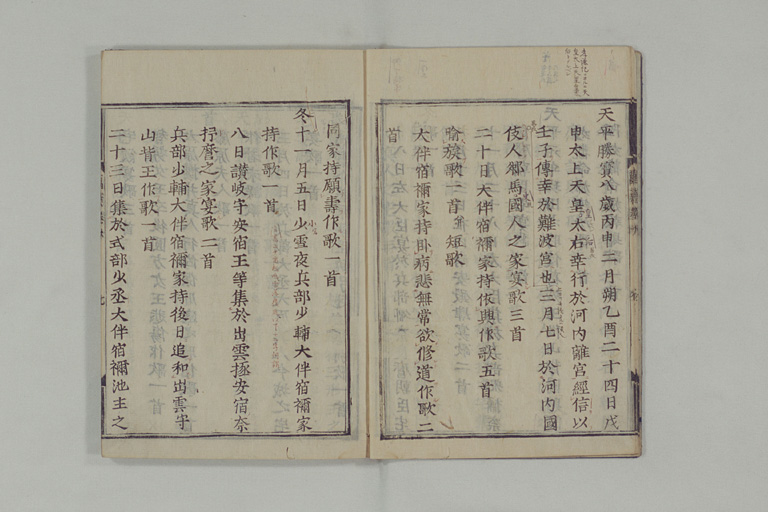 天平勝寶八歲丙申二月朔乙酉二十四日戊
申太上天皇太后幸行於河内離宮經信以
壬子傳幸於難波宮也三月七日於河内國
伎人鄉馬國人之家宴歌三首
二十日大伴宿禰家持依興作歌五首
喻族歌一首并短歌
大伴宿禰家持臥病悲無常欲修道作歌二
首
同家持願壽作歌一首
冬十一月五日少雷夜兵部少輔大伴宿禰家
持作歌一首
八日讃岐守安宿王等集於出雲掾安宿奈
杼麿之家宴歌二首
兵部少輔大伴宿禰家持後日追和出雲守
山背王作歌一首
二十三日集於式部少丞大伴宿禰池主之